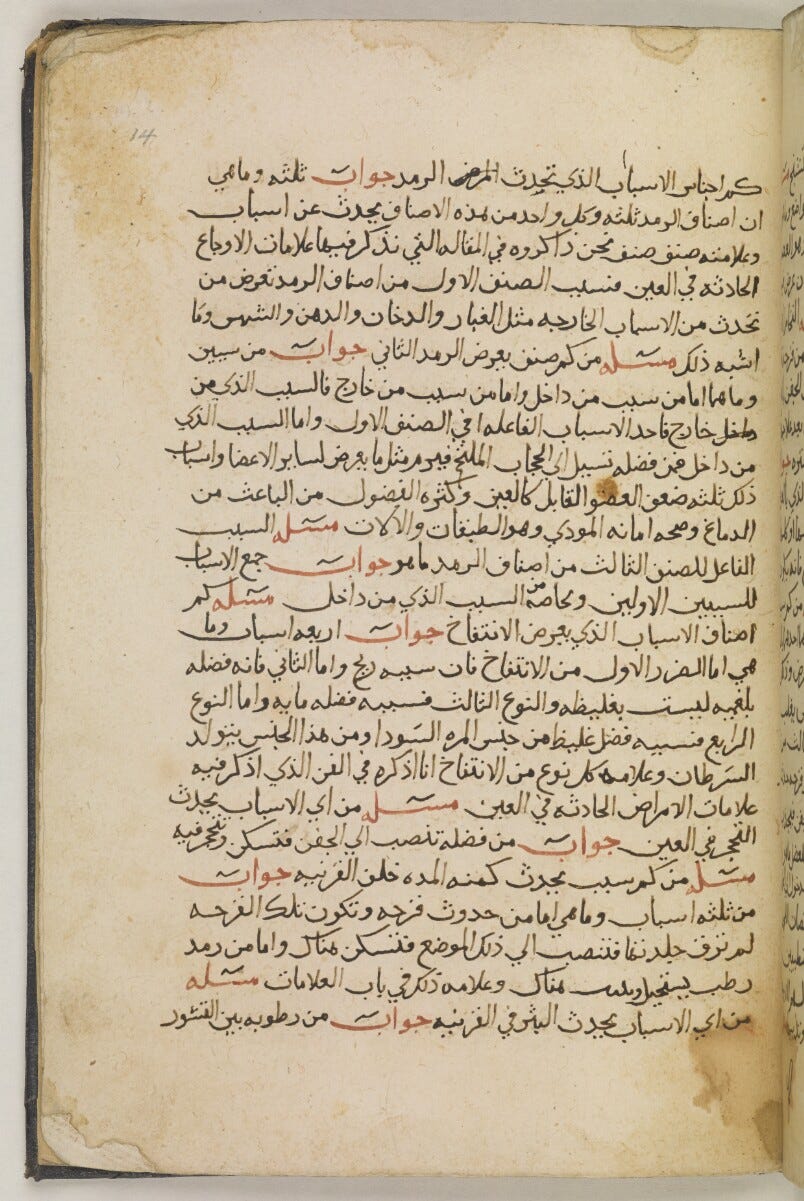 14
كم اجناس الاسباب الذي تحدث المرض الرمد جواب ثلثه وما هي
ان اصناف الرمد ثلثه وكل واحد من هذه الاصناف يحدث عن اسباب
وعلامته صنف صنف نحن ذاكروه في المقاله التي نذكر فيها علامات الاوجاع
الحادثه في العين فسبب الصنف الاول من اصناف الرمد تعرض من
تحدث من الاسباب الخارجه مثل الغبار والدخان والدهن والشمس وما
اشبه ذلك مسئله من كم صنف يعرض الرمد الثاني جواب من سببين
وما هما اما من سبب من داخل واما من سبب من خارج فالسبب الذي من
خارج فاحد الاسباب الفاعله في الصنف الاول واما السبب الذي
من داخل فمن فضله تسيل الى الحجاب الملتحم فيورم مثل ما يعرض لساير الاعضا واسباب
ذلك ثلثه ضعف العضو القابل كالعين وكثره الفضول من الباعث من
الدماغ وصحه امانه المودي وهو الطبقات والالات مسئله السبب
الفاعل للصنف الثالث من اصناف الرمد ما هو جواب جمع الاسباب
للسببين الاولين وخاصه من السبب الذي من داخل مسئله كم
اصناف الاسباب الذي يعرض الانتفاخ جواب اربعه اسباب وما
هي اما الضرر الاول من الانتفاخ فان سببه ريح واما الثاني فانه فضله
بلغميه ليست بغليظه والنوع الثالث فسببه فضله مايه واما النوع
الرابع فسببه فضل غليظ من جنس المره السودا ومن هذا الجنس يتولد
السرطان وعلامه كل نوع من الانتفاخ انا اذكره في الفن الذي اذكر فيه
علامات الامراض الحادثه في العين مسئله من اي الاسباب يحدث
التحجر في العين جواب من فضله تنصب الي الجفن فتسكن وتتحجر فيه
مسئله من كم سبب يحدث كمنه المده خلف القرنيه جواب
من ثلثه اسباب وما هي اما من حدوث قرحه وتكون تلك القرحه
لم تزق جلد تها فتنصب الي ذلك الموضع فتسكن هناك واما من رمد
رطب يستحيل هناك وعلامه ذلك في باب العلامات مسئله
من اي الاسباب يحدث البثر في القرنيه جواب من رطوبه بين القشور